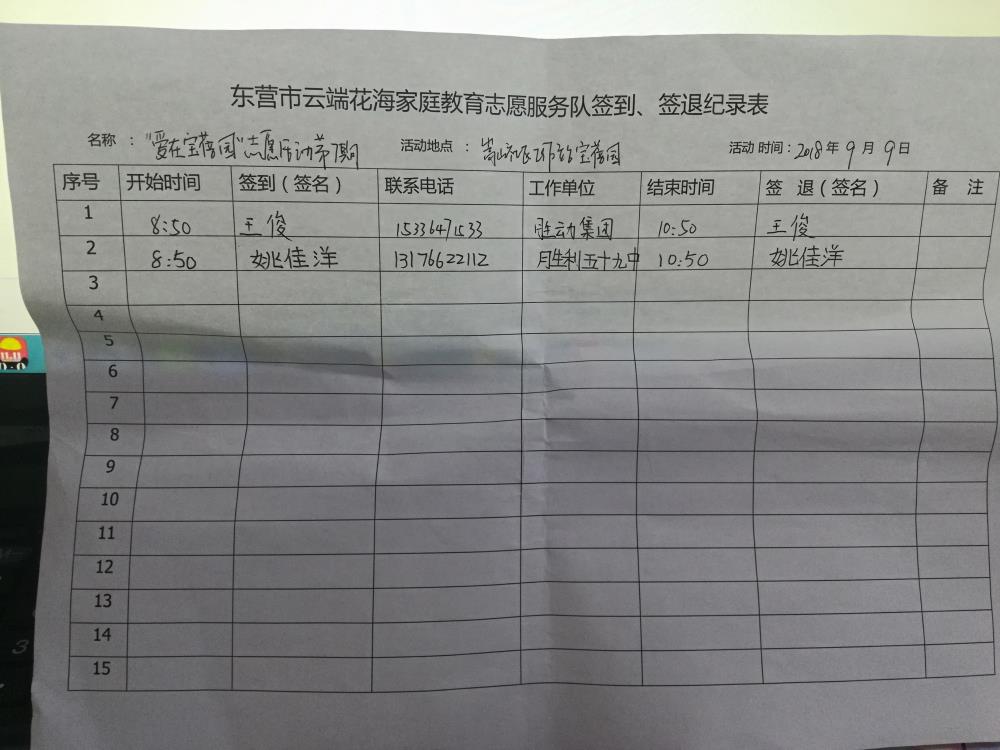 东营市云端花海家庭教育志愿服务队签到、签退纪录表
名称 ："爱在宝蓓园"志愿活动第1期 活动地点 ： 宝蓓园 活动 时间：2018年 9月 9日
序号 开始时间 签到（签名） 联系电话 工作单位 结束时间 签 退（签名） 备 注
1 8:50 王俊 15336471533 胜动集团 10:50 王俊
2 8:50 姚佳洋 13176622112 胜利五十九中 10:50 姚佳洋
3
4
5
6
7
8
9
10
11
12
13
14
15